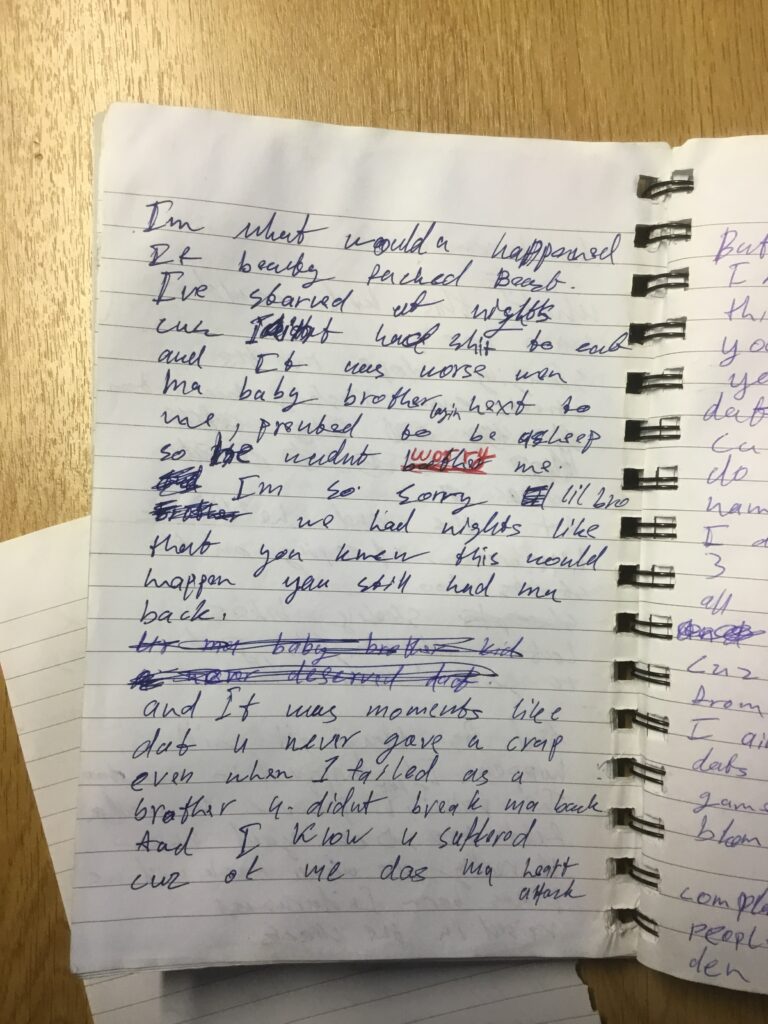 Im what woulda happened
If beauty fucked Beast.
I've starved at nights
cuz I didnt had shit to eat
and It was worse wen
Ma baby brother layin next to
me, pretended to be asleep
so he wudnt worry me.
I'm so sorry lil bro
we had nights like
that you knew this would
happen you still had ma
back.
ur ma baby brother kid
never deserved dat.
and It was moments like
dat u never gave a crap
even when I failed as a
brother u didnt break ma back
And I know u suffered
cuz of me das ma heart
attack
But
I
thi
yo
ye
dat
cu
do
nam
I d
3
all
cuz
from
I ai
dats
gam
blam
compl
peopl
den